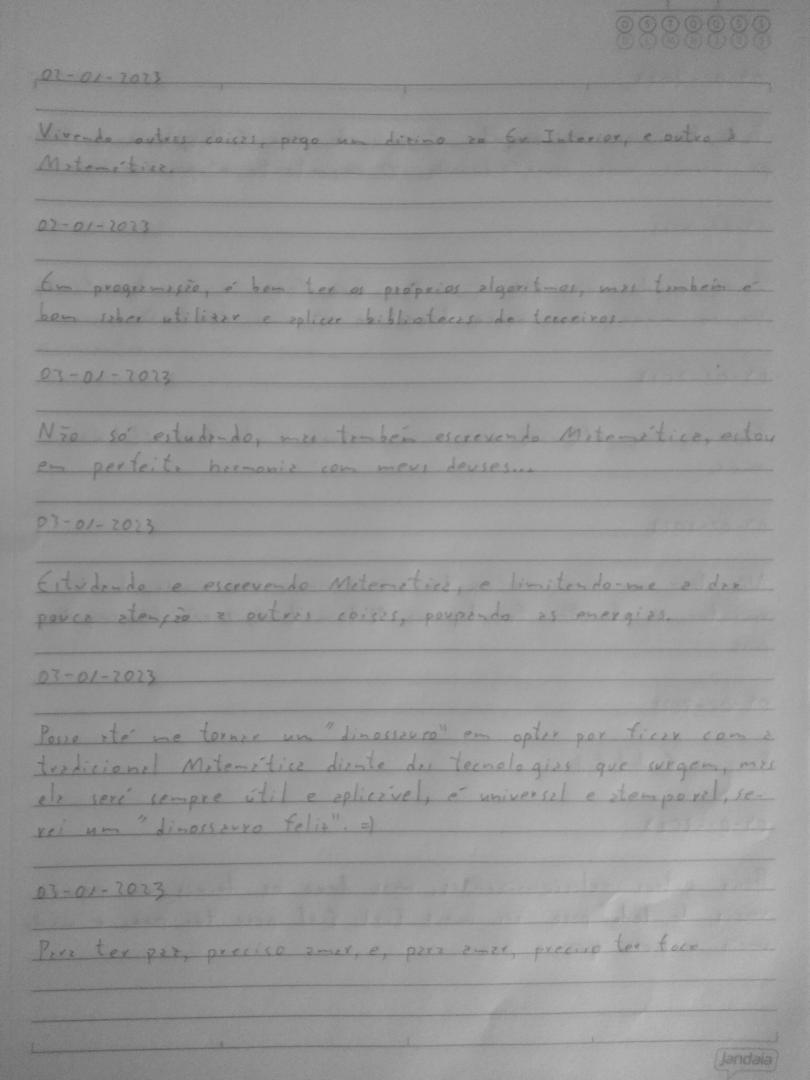 02-01-2023
Vivendo outras coisas, pago um dízimo ao Eu Interior, e outro à
Matemática.
02-01-2023
Em programação, é bom ter os próprios algoritmos, mas também é
bom saber utilizar e aplicar bibliotecas de terceiros.
03-01-2023
Não só estudando, mas também escrevendo Matemática, estou
em perfeita harmonia com meus deuses...
03-01-2023
Estudando e escrevendo Matemática, e limitando-me a dar
pouca atenção a outras coisas, poupando as energias.
03-01-2023
Posso até me tornar um "dinossauro" em optar por ficar com a
tradicional Matemática diante das tecnologias que surgem, mas
ela será sempre útil e aplicável, é universal e atemporal, se-
rei um "dinossauro feliz". =)
03-01-2023
Para ter paz, preciso amar, e, para amar, preciso ter foco
Jandaia